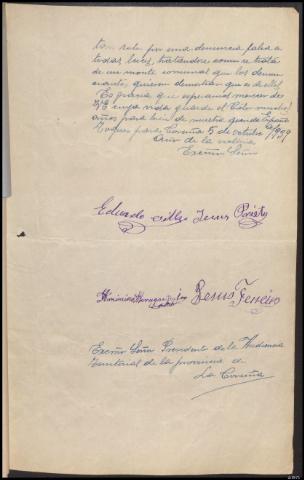 tan solo por una denuncia falsa a
todas luces, tratandose como se trata
de un monte comunal que los denun
ciantes, quieren demostrar que es de ellos
Es gracia que esperamos merecer de
V.E cuya vida guarde el Cielo muchos
años para bien de nuestra grande España
Toques para Coruña 5 de octubre 1939
Año de la victoria
Excmo Señor
Eduardo Jesus
Jesus Ferreiro
Excmo Señor Presidente de la Audiencia
Territorial de la provincia de
La Coruña